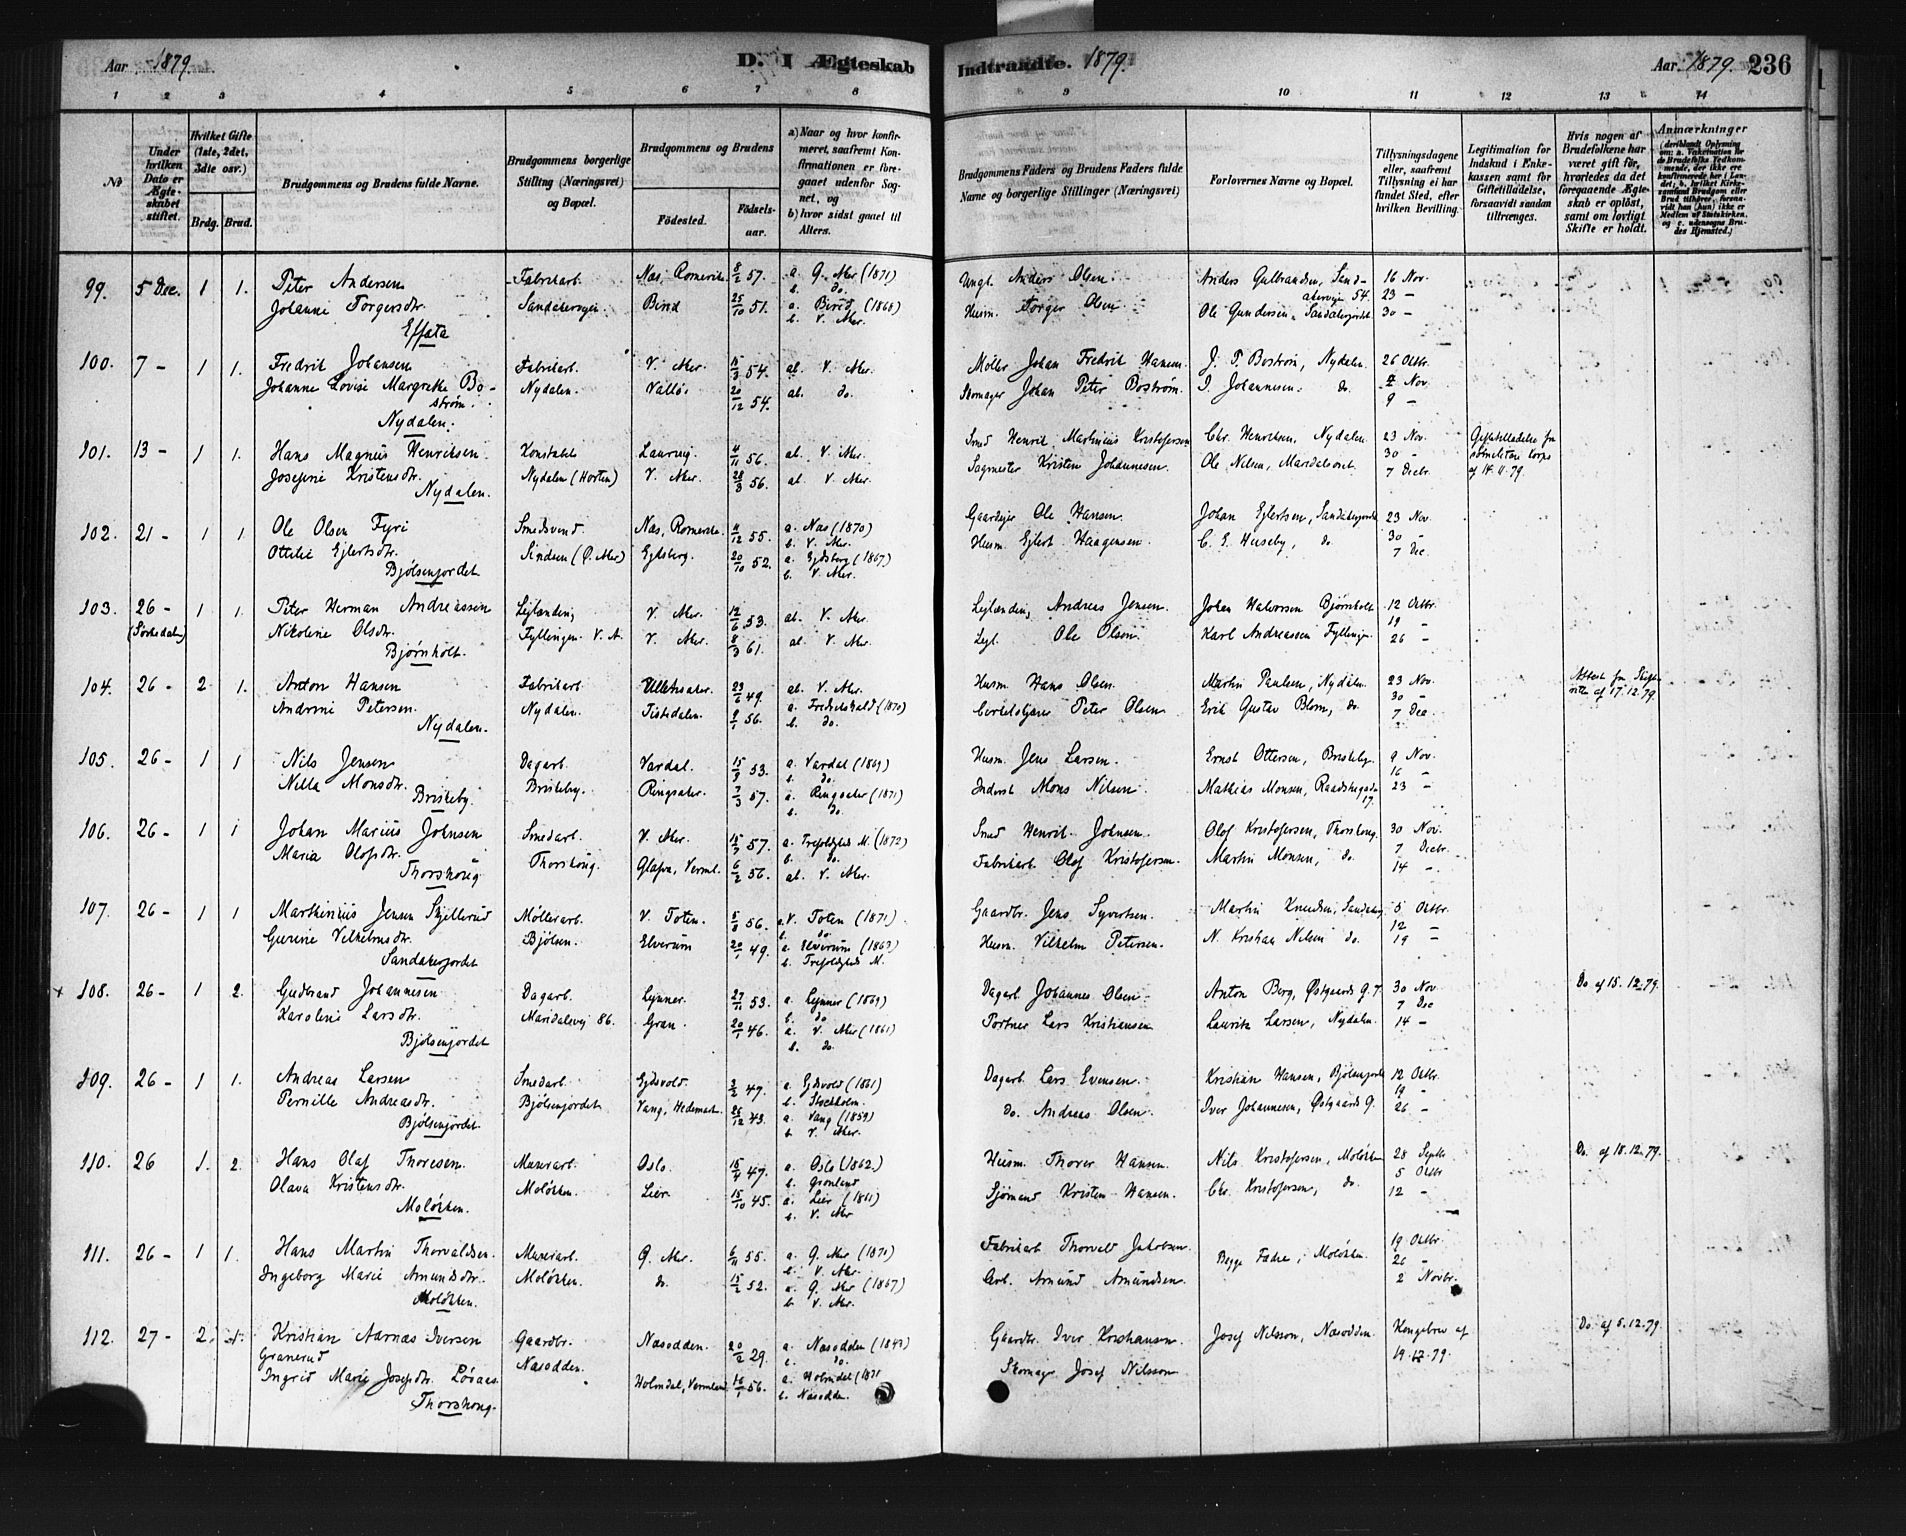 Aar 1879. D. I Ægteskab Indtraadte. 1879. Aar 1879. 236
1 2 3 4 5 6 7 8 9 10 11 12 13 14
No
Under hvilken Dato er Ægteskabet stiftet.
Hvilket Gifte (1ste, 2det, 3die osv.)
Brdg. Brud.
Brudgommens og Brudens fulde Navne.
Brudgommens borgerlige Stilling (Næringsvei) og Bopæl.
Brudgommens og Brudens
Fødested. Fødsels-aar.
a) Naar og hvor konfirmeret, saafremt Konfirmationen er foregaaet udenfor Sognet, og
b) hvor sidst gaaet til Alters.
Brudgommens Faders og Brudens Faders fulde Navne og borgerlige Stillinger (Næringsvei)
Forlovernes Navne og Bopæl.
Tillysningsdagene eller, saafremt Tillysning ei har fundet Sted, efter hvilken Bevilling.
Legitimation for Indskud i Enkekassen samt for Giftetilladelse, forsaavidt saadan tiltrænges.
Hvis nogen af Brudefolkene har været gift før, hvorledes da det foregaaende Ægteskab er opløst, samt om lovligt Skifte er holdt.
Anmærkninger
99. 5 Dec. 1 1. Peter Andersen Fabrikarb. Næs, Romerike 8/2 57. a. Ø. Aker (1871) Ungk. Anders Olsen. Anders Gulbrandsen, Sand- 16 Nov.
b. do. akervejen 54. 23 –
Johanne Torgersdtr. Sandakervejen Birid 25/10 51. a. Birid (1868) Husm. Torger Olsen Ole Gundersen, Sandakerjordet 30 –
Effata b. V. Aker.
100. 7 – 1 1. Fredrik Johansen Fabrikarb. V. Aker 54. ab. V. Aker. Møller Johan Fredrik Hansen. J. P. Bostrøm, Nydalen. 26 Oktbr.
Johanne Lovise Margrethe Bo- Nydalen. Valløe 20/12 54. ab. do. Skomager Johan Peter Bostrøm. I. Johannesen. do 2 Nov.
strøm. 9 –
Nydalen.
101. 13 – 1 1. Hans Magnus Henriksen. Konstabel Laurvig. 4/11 56. ab. V. Aker. Smed Henrik Martinius Kristofersen Chr. Henriksen, Nydalen 23 Nov. Giftetilladelse fra
30 –
Josefine Kristensdtr. Nydalen (Horten) V. Aker. 28/3 56. ab V. Aker. Sagmester Kristen Johannesen. Ole Nilsen, Maridalsvet. 7 Decbr. af 14.11.79.
Nydalen.
102. 21 – 1 1 Ole Olsen Fyri Smedsvend Næs, Romerike 4/12 55. a. Næs (1870) Gaardejer Ole Hansen. Johan Ejlertsen, Sandakerjordet 23 Nov.
b. V. Aker. 30 –
Ottilie Ejlertsdtr. Sinsen (Ø. Aker) Ejdsberg. 20/10 52. a. Ejdsberg (1867) Husm. Ejlert Haagensen. C. E. Huseby, do 7 Dec
Bjølsenjordet b. V. Aker.
103. 26 – 1 1. Peter Herman Andreassen Lejlænding V. Aker. 12/6 53. ab. V. Aker. Lejlænding Andreas Jensen. Johan Halvorsen Bjørnholt 12 Oktbr.
(Sørkedalen) 19 –
Nikoline Olsdtr. Fyllingen V. A. V. Aker. 8/3 61. ab V. Aker. Lejl. Ole Olsen. Karl Andreassen Fyllingen 26 –
Bjørnholt.
104. 26 – 2 1. Anton Hansen Fabrikarb. Ullensaker. 23/6 49. ab. V. Aker. Husm. Hans Olsen. Martin Paulsen, Nydalen 23 Nov. Attest fra Skifte-
30 – retten af 17.12.79.
Andrine Petersen. Nydalen. Tistedalen. 56. a. Fredrikshald (1870) Peter Olsen Erik Gustav Blom, do 7 Dec.
Nydalen. b. do.
105. 26 – 1 1 Nils Jensen Dagarb. Vardal. 15/9 53. a. Vardal (1869) Husm. Jens Larsen. Ernst Ottersen, Briskeby 9 Nov.
b. do. 16 –
Nilla Monsdtr. Briskeby. Ringsaker. 7/3 57. a. Ringsaker (1871) Inderst Mons Nilsen Mathias Monsen, Raadhusgaden 23 –
Briskeby. b. do. 17.
106. 26 – 1 1 Johan Marius Johnsen Smedarb. V. Aker. 15/7 57. a. Trefoldigheds M. (1872) Smed Henrik Johnsen. Olof Kristofersen, Thorshoug. 30 Nov.
b. do. 7 Decbr.
Maria Olofsdtr. Thorshoug. Glafva, Verml. 6/2 56. ab. V. Aker. Fabrikarb. Olof Kristofersen. Martin Monsen, do. 14 –
Thorshoug
107. 26 – 1 1 Marthinius Jensen Skjellerud Møllerarb. V. Toten. 56. a. V. Toten (1871) Gaardbr. Jens Syvertsen. Martin Knudsen, Sandakerj 5 Oktbr.
b. do 12 –
Gurine Vilhelmsdtr. Bjølsen. Elverum 20/1 49. a. Elverum (1863) Husm. Vilhelm Petersen. N. Kristian Nilsen do. 19 –
Sandakerjordet b. Trefoldigheds M.
108. 26 – 1 2. Gulbrand Johannesen Dagarb. Lunner. 27/11 53. a. Lunner (1869) Dagarb Johannes Olsen – Anton Berg, Østgaards G. 7. 30 Nov Do af 15.12.79.
b. do 7 Dec
Karoline Larsdtr. Maridalsvej 86. Gran. 20/1 46. a. V. Aker (1861) Portner Lars Kristiansen Lauritz Larsen, Nydalen. 14 –
Bjølsenjordet b. do.
109. 26 – 1 1. Andreas Larsen Smedarb. Ejdsvold. 47. a. Ejdsvold (1861) Dagarb. Lars Evensen. Kristian Hansen, Bjølsenjordet 12 Oktbr.
b. Stockholm. 19 –
Pernille Andreasdtr. Bjølsenjordet Vang, Hedemark. 26/12 43. a. Vang (1859) do. Andreas Olsen. Iver Johannesen, Østgaards G. 26 –
Bjølsenjordet. b. V. Aker.
110. 26 1. 2. Hans Olaf Thoresen. Murerarb. Oslo. 15/4 47. a. Oslo (1862.) Husm. Thorer Hansen. Nils Kristofersen, Moløkken 28 Septbr Do. af 18.12.79.
b. Grønland 5 Oktbr
Olava Kristensdtr. Moløkken. Lier. 15/10 45. a. Lier (1861) Sjømand Kristen Hansen. Chr. Kristofersen, do 12 –
Moløkken. b. V. Aker
111. 26 – 1 1. Hans Martin Thorvaldsen. Murerarb. Ø. Aker. 6/11 55. a. Ø. Aker (1870) Fabrikarb Thorvald Jakobsen. Begge Fædre, Moløkken. 19 Oktbr.
b. V. Aker. 26 –
Ingeborg Marie Amundsdtr. Moløkken. do. 15/2 52. a. Ø. Aker (1867) Arb. Amund Amundsen. 2 Novbr.
Moløkken. b. V. Aker.
112. 27 – 2. 1. Kristian Aarnæs Iversen Gaardbr. Næsodden. 20/2 29. a. Næsodden (1843) Gaardbr. Iver Kristiansen. Josef Nilsson, Næsodden. Kongebrev af Do. af 5.12.79.
Granerud b. do. 19.12.79.
Ingrid Marie Josefsdtr. Løvaas. Næsodden. Holmdal, Vermland 16/1 56. a. Holmdal (1871 Skomager Josef Nilsson
Thorshoug. b. Næsodden.